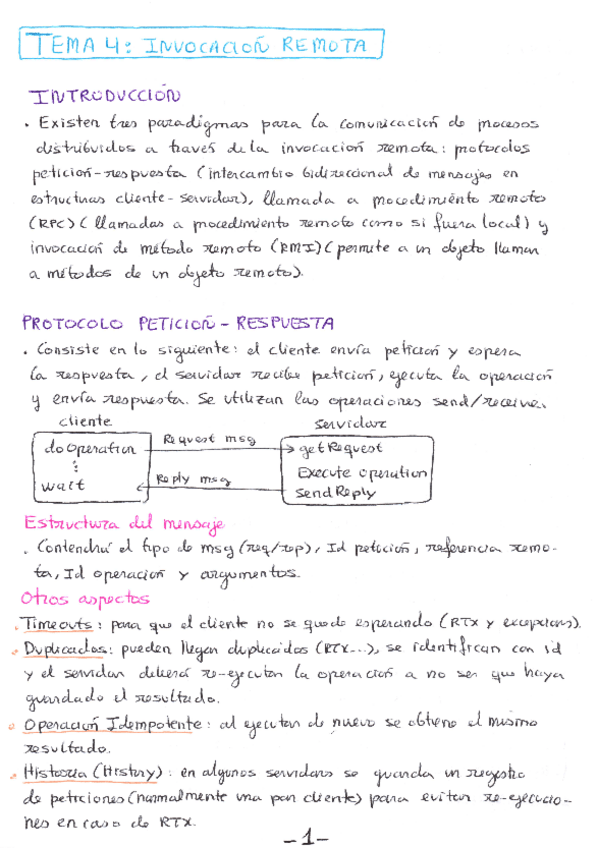 TEMA 4: INVOCACIÓN REMOTA
INTRODUCCIÓN
. Existen tres paradigmas para la comunicación de procesos
distribuidos a través de la invocación remota: protocolos
petición-respuesta (intercambio bidireccional de mensajes en
estructuras cliente-servidor), llamada a procedimiento remoto
(RPC) (llamadas a procedimiento remoto como si fuera local) y
invocación de método remoto (RMI) (permite a un objeto llamar
a métodos de un objeto remoto).
PROTOCOLO PETICIÓN - RESPUESTA
. Consiste en lo siguiente: el cliente envía petición y espera
la respuesta, el servidor recibe petición, ejecuta la operación
y envía respuesta. Se utilizan las operaciones send/receive.
cliente
servidor
doOperation
Request msg
getRequest
⋮
Execute operation
wait
Reply msg
sendReply
Estructura del mensaje
. Contendrá el tipo de msg (req/rep), Id petición, referencia remo-
ta, Id operación y argumentos.
Otros aspectos
. Timeouts: para que el cliente no se quede esperando (RTX y exceptions).
. Duplicados: pueden llegar duplicados (RTX...), se identifican con id
y el servidor deberá re-ejecutar la operación a no ser que haya
guardado el resultado.
. Operación Idempotente: al ejecutar de nuevo se obtiene el mismo
resultado.
. Historia (History): en algunos servidores se guarda un registro
de peticiones (normalmente una por cliente) para evitar re-ejecucio-
nes en caso de RTX.
-1-